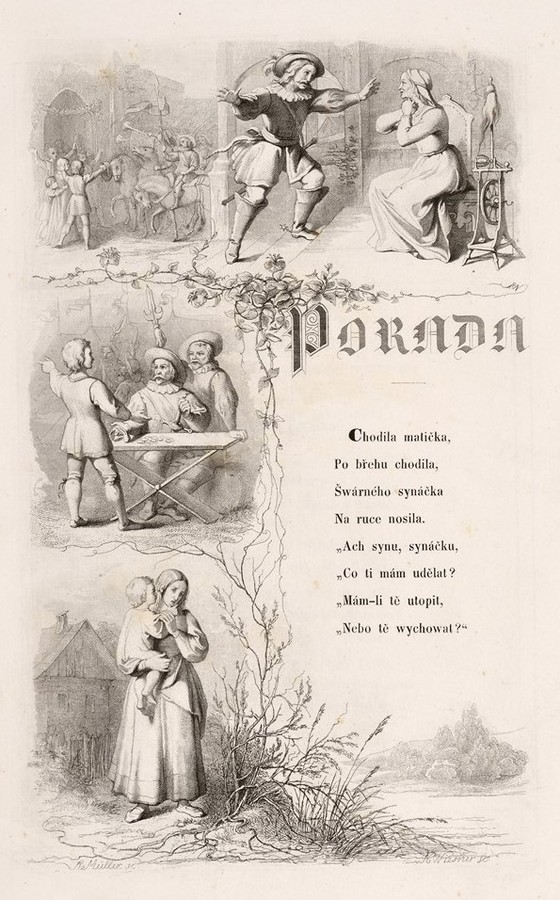 PORADA
Chodila matička,
Po břehu chodila,
Šwárného synáčka
Na ruce nosila.
„Ach synu, synáčku,
„Co ti mám udělat?
„Mám-li tě utopit,
„Nebo tě wychowat?“
Müller sc.